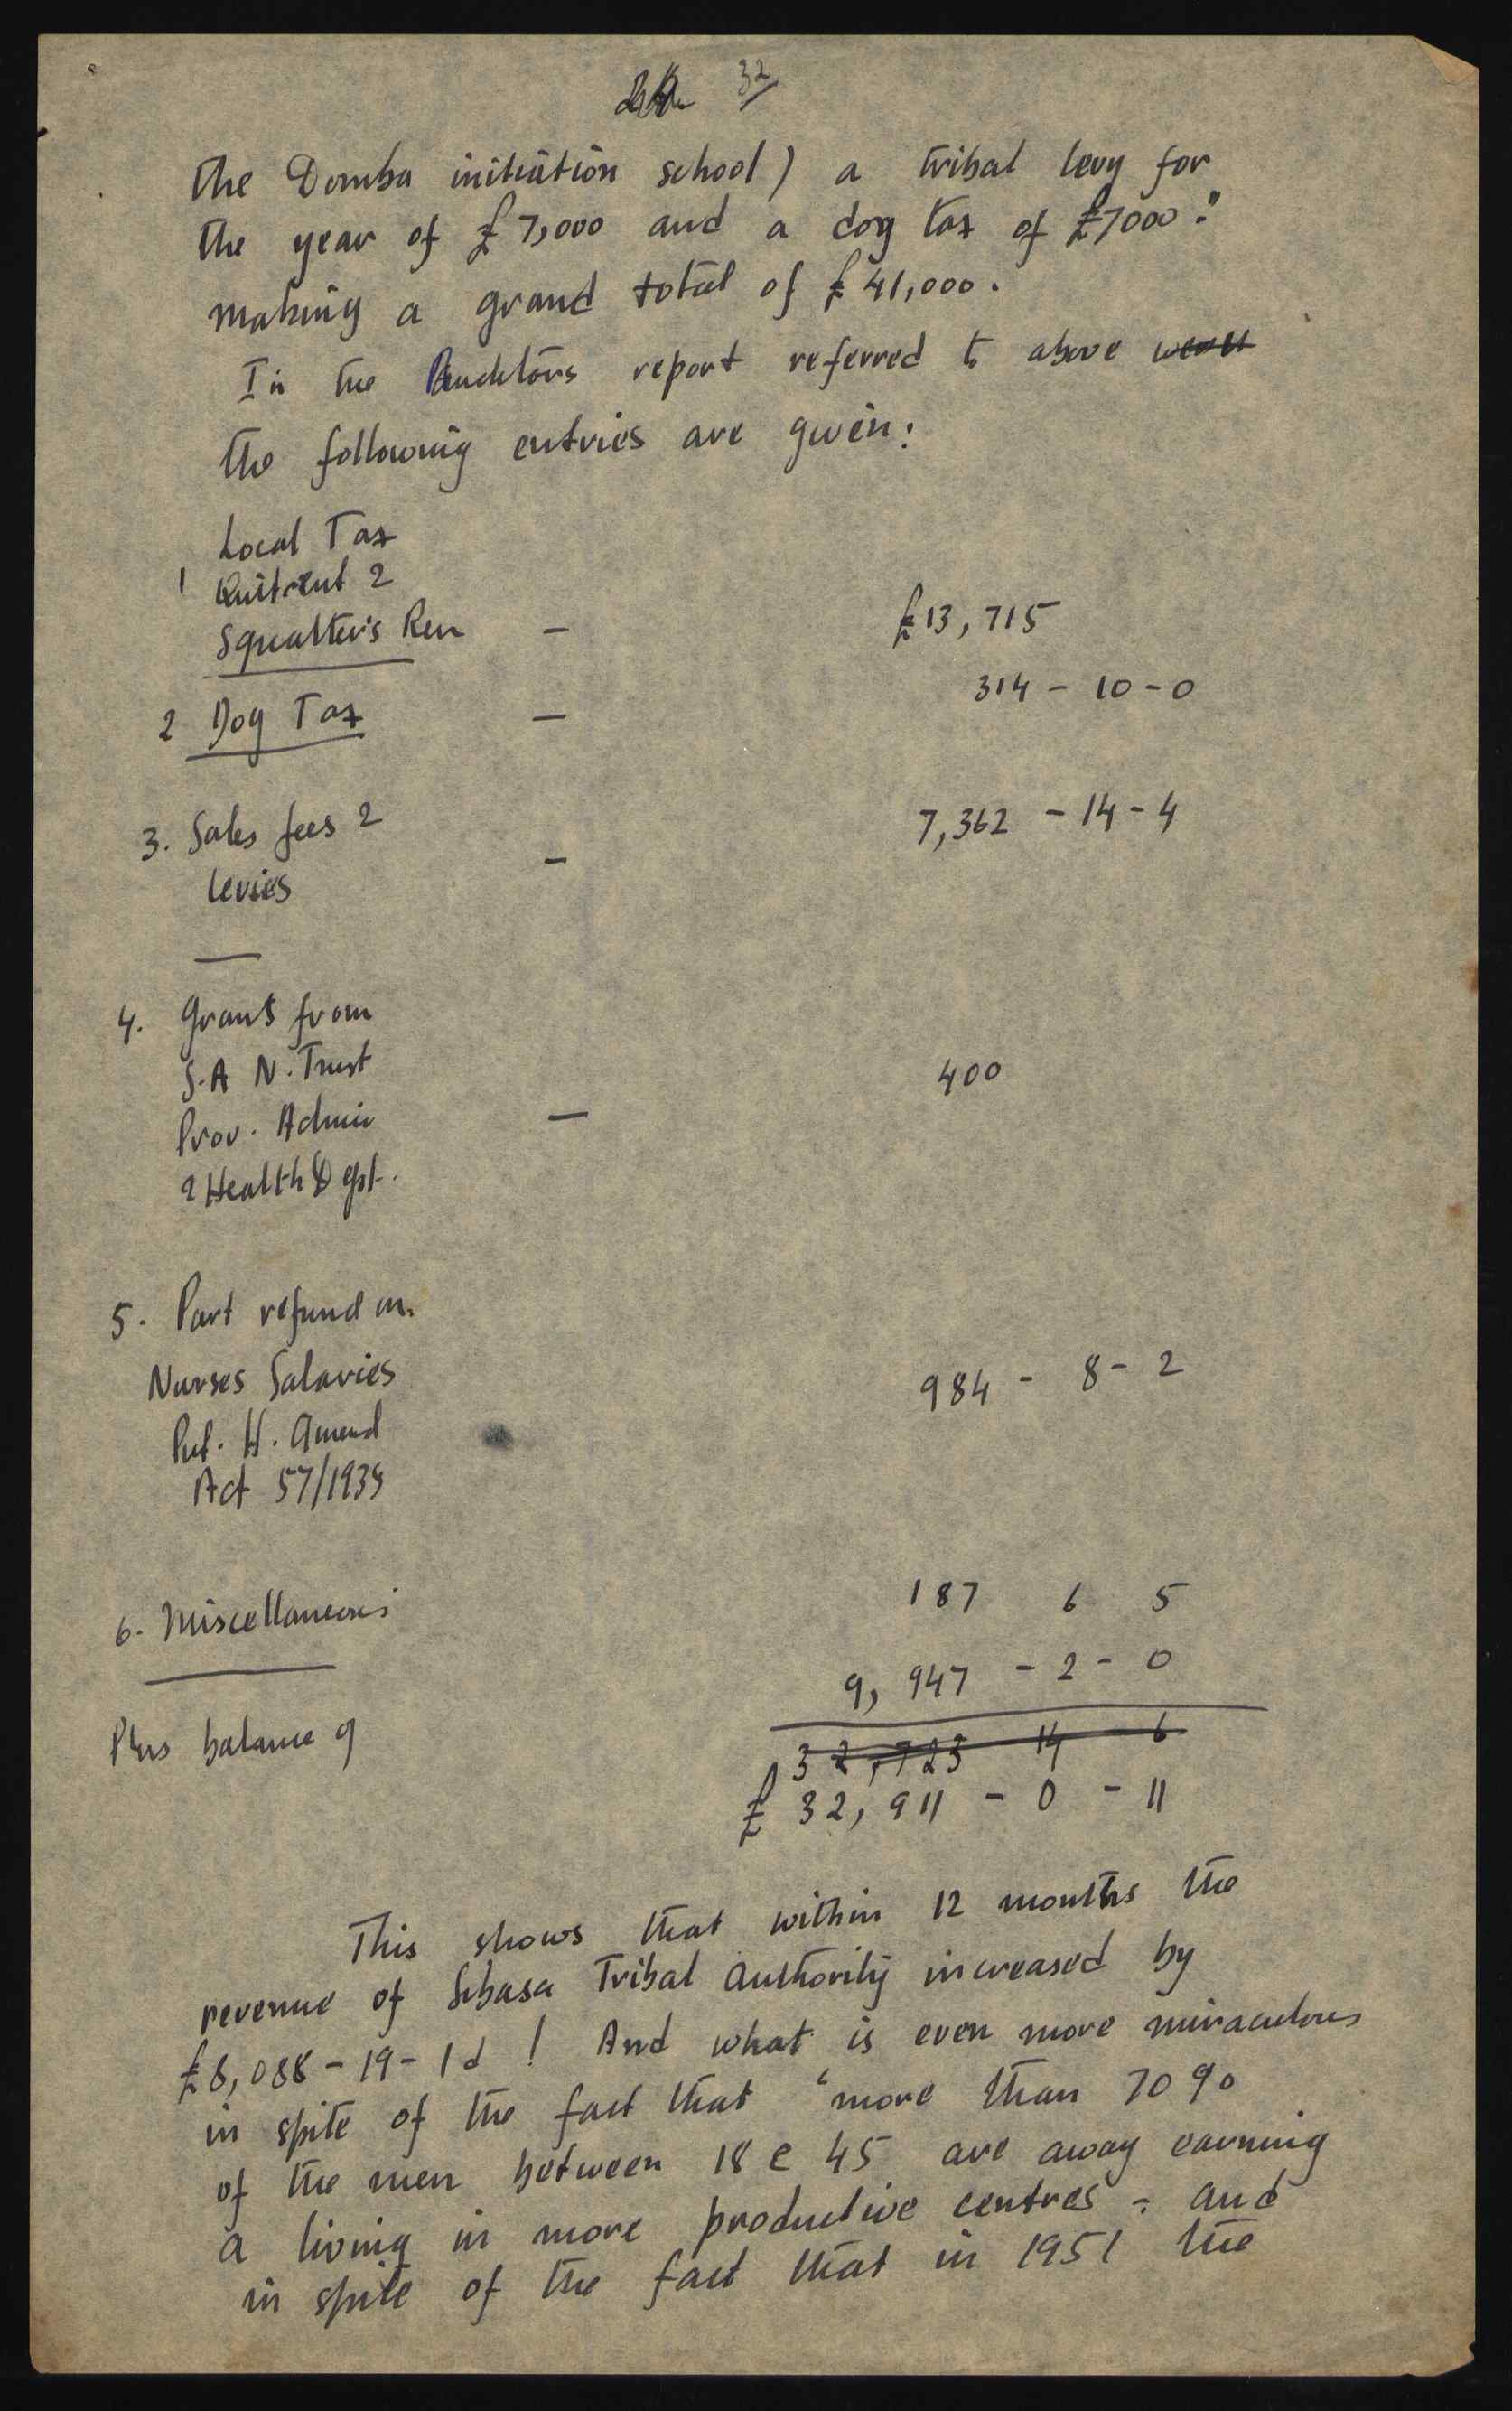 32
the Domba initiation school) a tribal levy for
the year of £7,000 and a dog tax of £7000."
making a grand total of £41,000.
In the Auditors report referred to above
the following entries are given:
Local Tax
1 Quitrent &
Squatter's Ren — £13,715
2 Dog Tax — 314 - 10 - 0
3. Sales fees & — 7,362 - 14 - 4
levies
4. Grants from
S.A N. Trust 400
Prov. Admin —
& Health Dept.
5. Part refund on
Nurses Salaries 984 - 8 - 2
Pub. H. Amend
Act 57/1935
6. Miscellaneous 187 6 5
9,947 - 2 - 0
Plus balance of 32,723 14 6
£ 32,911 - 0 - 11
This shows that within 12 months the
revenue of Sibasa Tribal Authority increased by
£8,088 - 19 - 1d ! And what is even more miraculous
in spite of the fact that "more than 70%
of the men between 18 & 45 are away earning
a living in more productive centres - and
in spite of the fact that in 1951 the